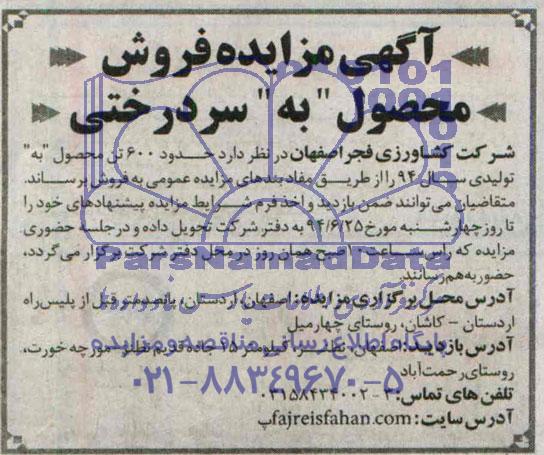 آگهی مزایده فروش
محصول "به" سردرختی
شرکت کشاورزی فجر اصفهان در نظر دارد حدود ۶۰۰ تن محصول "به"
تولیدی سال ۹۴ را از طریق مفاد بندهای مزایده عمومی به فروش برساند.
متقاضیان می توانند ضمن بازدید و اخذ فرم شرایط مزایده پیشنهادهای خود را
تا روز چهارشنبه مورخ ۹۴/۶/۲۵ به دفتر شرکت تحویل داده و در جلسه حضوری
مزایده که راس ساعت ۱۰ صبح همان روز در محل دفتر شرکت برگزار می گردد،
حضور به هم رسانند.
ParsNamadData
آدرس محل برگزاری مزایده: اصفهان، اردستان، پانصد متر قبل از پلیس راه
اردستان - کاشان، روستای چهارمیل
پایگاه اطلاع رسانی مناقصه و مزایده
آدرس بازدید: اصفهان، نطنز، کیلومتر ۱۵ جاده قدیم نطنز - مورچه خورت،
روستای رحمت آباد
۰۲۱-۸۸۳۴۹۶۷۰-۵
تلفن های تماس: ۳-۰۳۱۵۸۴۳۴۰۰۲
آدرس سایت: fajreisfahan.com